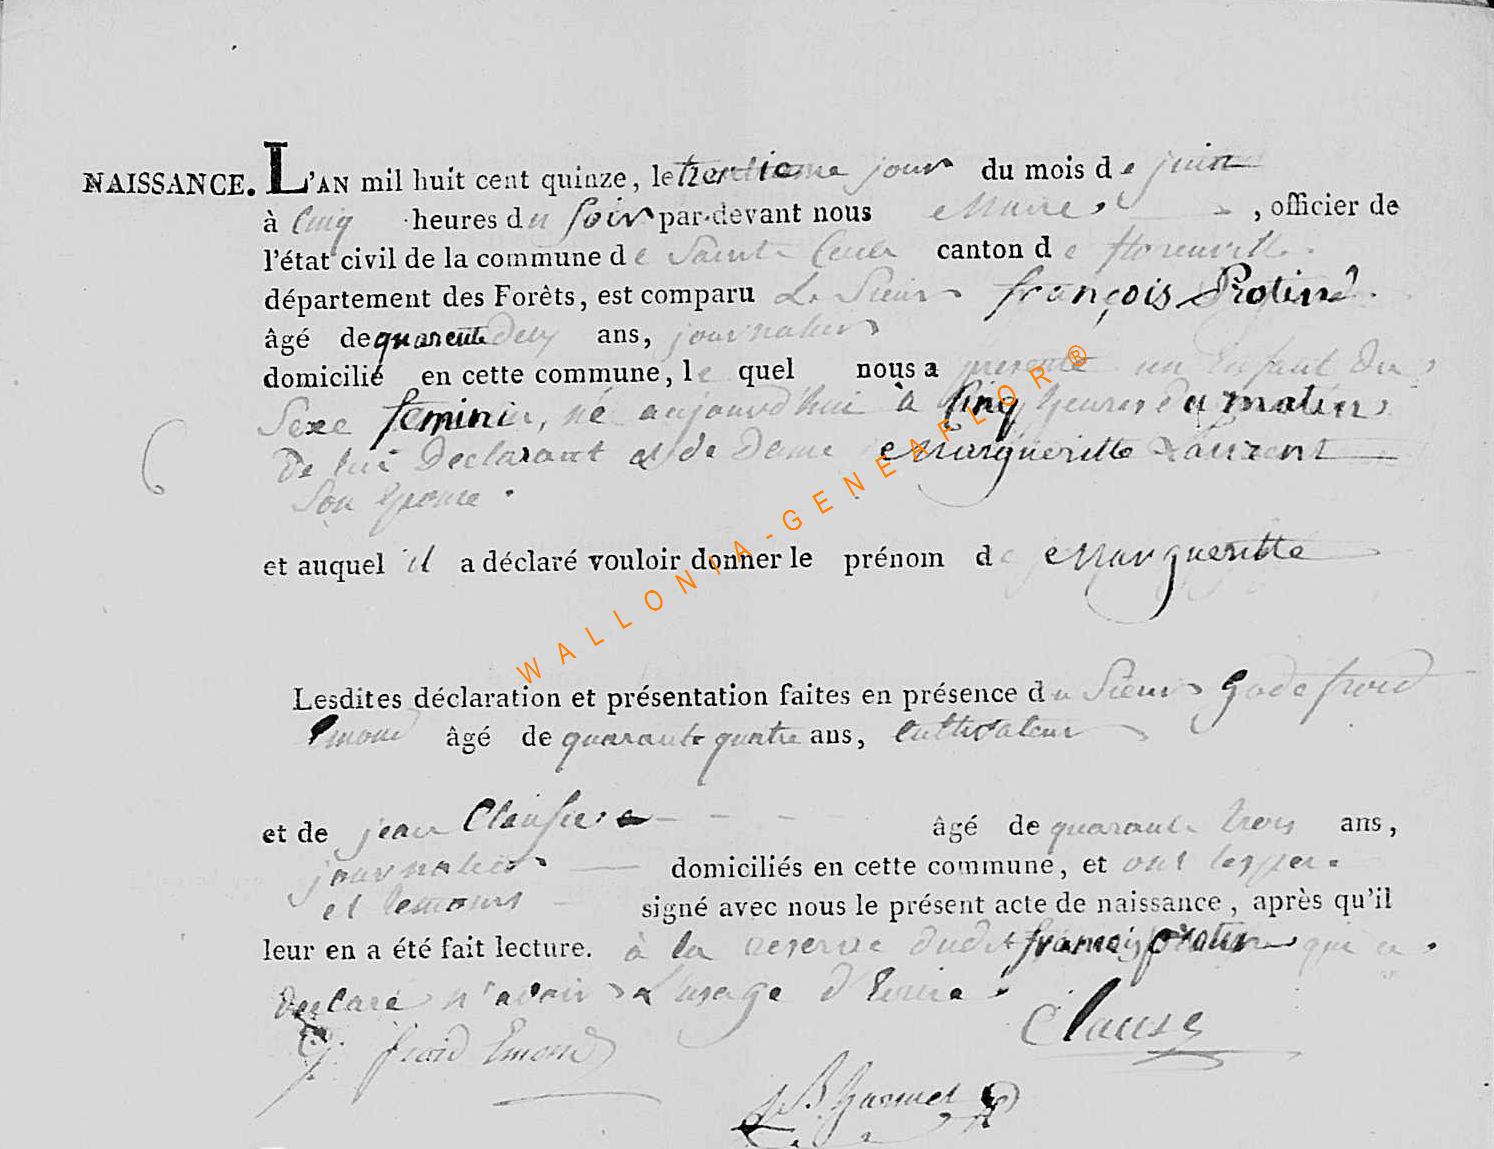 NAISSANCE. L'AN mil huit cent quinze, le jour du mois de juin
à Cinq heures du soir par-devant nous Maire, officier de
l'état civil de la commune de Sainte Cecile canton de florenville
département des Forêts, est comparu Le Sieur françois Protin
âgé de quarente deux ans, journalier
domicilié en cette commune, le quel nous a présenté un Enfant du
Sexe feminin, né aujourd'hui à Cinq heures du matin
De lui Declarant et de Dame Margueritte Laurent
Son Epouse.
et auquel il a déclaré vouloir donner le prénom de Margueritte
Lesdites déclaration et présentation faites en présence du Sieur Godefroid
Emond âgé de quarante quatre ans, Cultivateur
et de jean Clause âgé de quarante trois ans,
journalier domiciliés en cette commune, et ont les pere
et temoins signé avec nous le présent acte de naissance, après qu'il
leur en a été fait lecture. à la reserve dudit francois protin qui a
declaré n'avoir l'usage d'Ecrire.
G. froid Emond Clause
WALLONIA-GENEAFLOR®